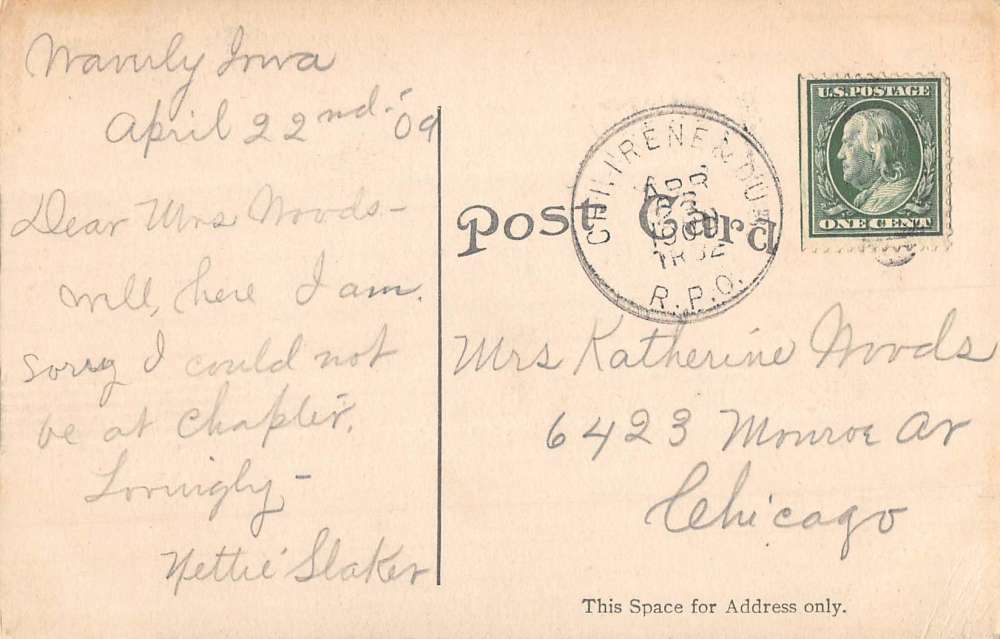 Waverly Iowa
April 22nd-'09
Dear Mrs Woods-
well, here I am.
sorry I could not
be at Chapter.
Lovingly-
Nettie Slaker
Post Card
U.S. POSTAGE
ONE CENT
APR
1909
R.P.O.
Mrs Katherine Woods
6423 Monroe Av
Chicago
This Space for Address only.